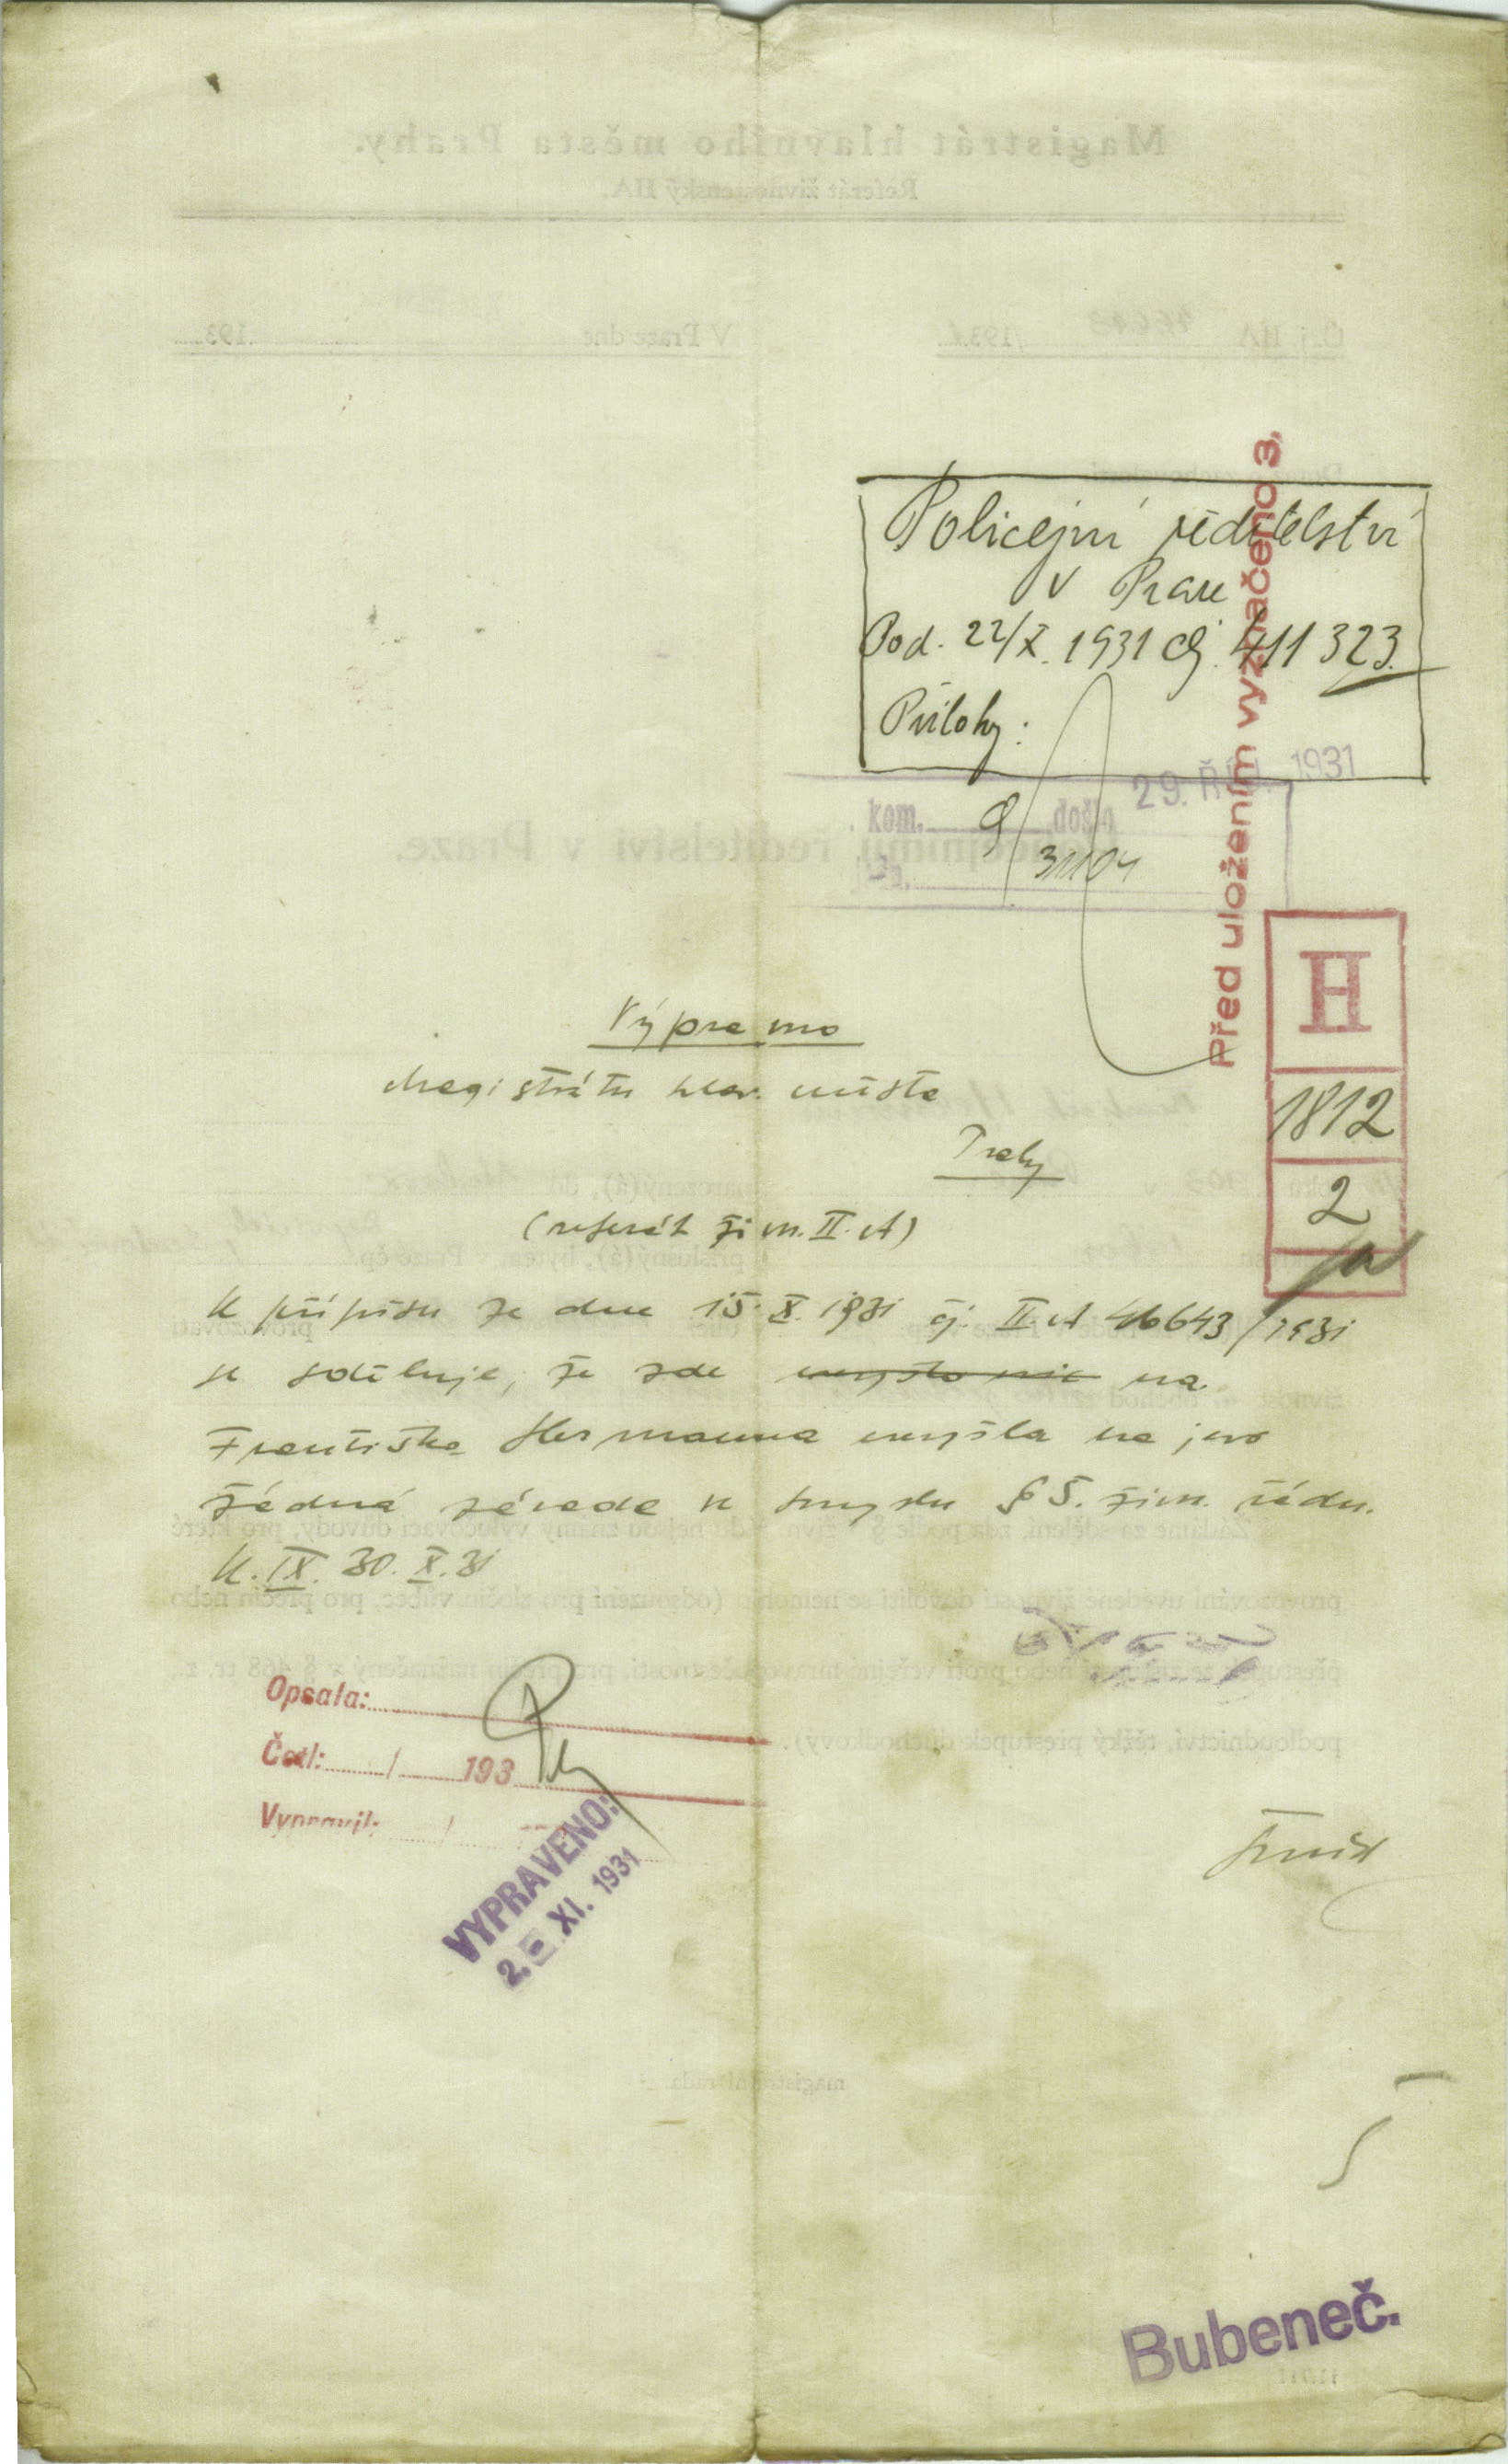 Policejní ředitelství
v Praze
Pod. 22/X. 1931 čj. 411 323.
Přílohy:
29. ŘÍJ. 1931
kom. 9 došlo
31104
Před uložením vyznačeno 3.
H
1812
2
Výpravno
Magistrátu hlav. města
Prahy
(referát živn. II. A)
K přípisu ze dne 15. X. 1931 čj. II. A 46643/1931
se sděluje, že zde na
Františka Hermanna nevyšla na jevo
žádná závada ve smyslu § 5. živn. řádu.
K. IX. 30. X. 31
Opsala:
Četl: / 193
Vypravil: /
VYPRAVENO:
2. XI. 1931
Bubeneč.